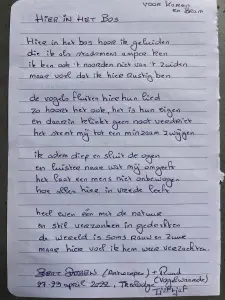 voor Korneel
en Bram
HIER IN HET BOS
Hier in het bos hoor ik geluiden
die ik als stadsmens amper ken
ik ken ook 't noorden niet van 't zuiden
maar voel dat ik hier rustig ben
de vogels fluiten hier hun lied
zo hoort het ook, het is hun eigen
en daarin klinkt geen noot verdriet
het stemt mij tot een minzaam zwijgen
ik adem diep en sluit de ogen
en luister naar wat mij omgeeft
het laat een mens niet onbewogen
hoe alles hier in vrede leeft
heel even één met de natuur
en stil verzonken in gedachten
de wereld is soms rauw en zuur
maar hier voel ik hem weer verzachten
(Antwerpen) + Ruud
(Vogelwaarde)
april 2022,